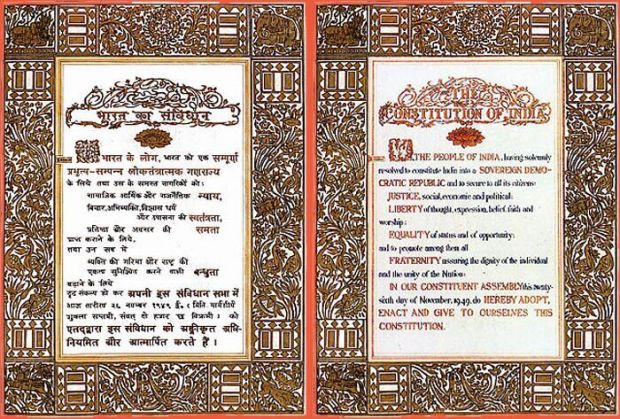 भारत का संविधान
हम भारत के लोग, भारत को एक सम्पूर्ण
प्रभुत्व-सम्पन्न लोकतंत्रात्मक गणराज्य
के लिये तथा उस के समस्त नागरिकों को:
सामाजिक आर्थिक और राजनैतिक न्याय,
विचार, अभिव्यक्ति, विश्वास धर्म
और उपासना की स्वतंत्रता,
प्रतिष्ठा और अवसर की समता
प्राप्त कराने के लिये,
तथा उन सब में
व्यक्ति की गरिमा और राष्ट्र की
एकता सुनिश्चित करने वाली बन्धुता
बढ़ाने के लिये
दृढ़ संकल्प हो कर अपनी इस संविधान सभा में
आज तारीख २६ नवम्बर १९४९ ई॰ (मिति मार्गशीर्ष
शुक्ला सप्तमी, संवत् दो हजार छ विक्रमी) को
एतद्द्वारा इस संविधान को अङ्गीकृत अधि-
नियमित और आत्मार्पित करते हैं ।
THE
CONSTITUTION OF INDIA
WE, THE PEOPLE OF INDIA, having solemnly
resolved to constitute India into a SOVEREIGN DEMO-
CRATIC REPUBLIC and to secure to all its citizens:
JUSTICE, social, economic and political;
LIBERTY of thought, expression, belief, faith and
worship;
EQUALITY of status and of opportunity;
and to promote among them all
FRATERNITY assuring the dignity of the individual
and the unity of the Nation;
IN OUR CONSTITUENT ASSEMBLY this twenty-
sixth day of November, 1949, do HEREBY ADOPT,
ENACT AND GIVE TO OURSELVES THIS
CONSTITUTION.